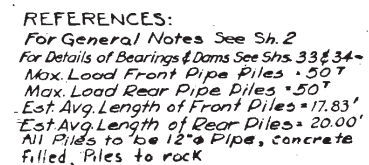 REFERENCES:
For General Notes See Sh. 2
For Details of Bearings & Dams See Shs. 33 & 34-
Max. Load Front Pipe Piles = 50T
Max. Load Rear Pipe Piles = 50T
Est. Avg. Length of Front Piles = 17.83'
Est. Avg. Length of Rear Piles = 20.00'
All Piles to be 12"ø Pipe, concrete
filled. Piles to rock